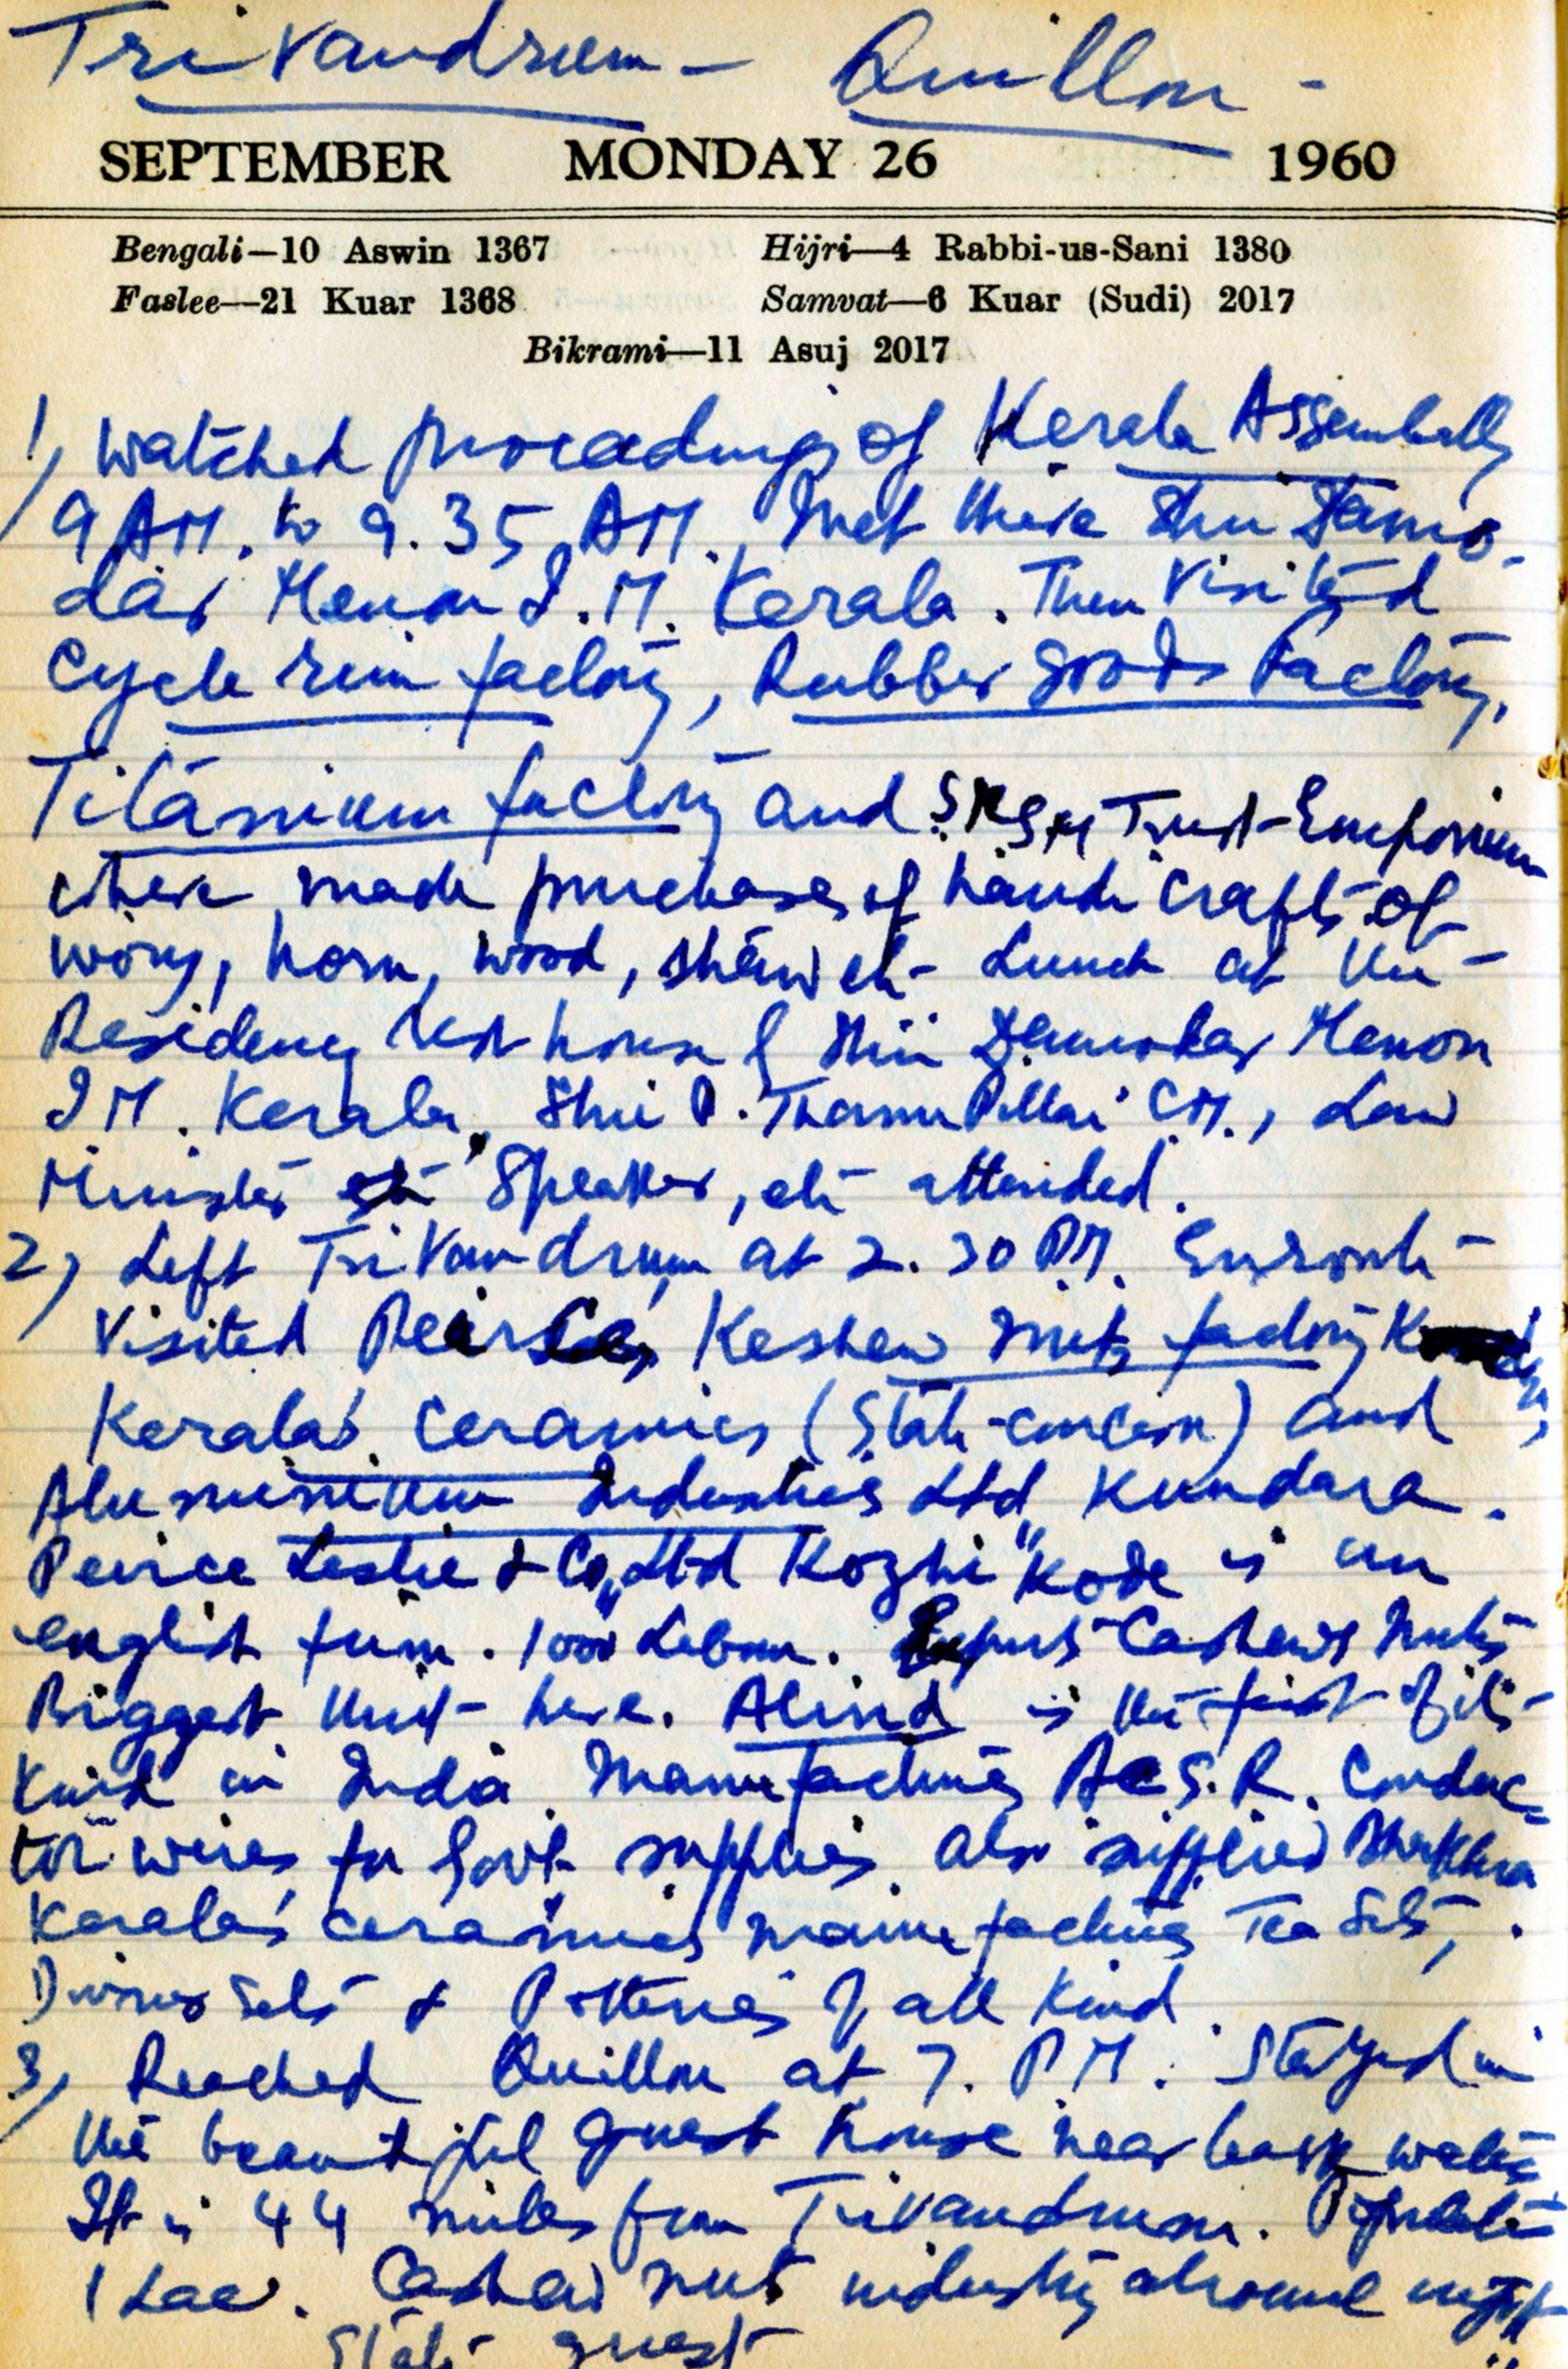 Trivandrum - Quillon -
SEPTEMBER MONDAY 26 1960
Bengali—10 Aswin 1367 Hijri—4 Rabbi-us-Sani 1380
Faslee—21 Kuar 1368 Samvat—6 Kuar (Sudi) 2017
Bikrami—11 Asuj 2017
1) Watched proceedings of Kerala Assembally
9 AM. to 9.35 AM. Met there Shri Damo-
dar Menon I.M. Kerala. Then visited
Cycle rim factory, Rubber goods Factory,
Titanium factory and S.M.S.M Trust Emporium
where made purchases of handi crafts of
ivory, horn, wood, etc Lunch at the
Residency rest house & Shri Damodar Menon
I.M. Kerala, Shri P. Thanu Pillai C.M., Law
Minister Speaker, etc attended.
2) Left Trivandrum at 2.30 P.M. Enroute
Visited Keshew nuts factory
Kerala's Ceramics (State-concern) and
Aluminium Industries Ltd Kundara.
Peirce Leslie & Co, Ltd "Kozhikode" is an
english firm. 1000 Labour. Cashews Nuts
Biggest Unit here. Alind is the first of its
kind in India. Manufactures A.C.S.R. Conduc-
tor wires for Govt supplies. also supplied
Kerala's ceramics manufactures Tea Sets,
Dinner Sets & Potteries of all kind.
3) Reached Quillon at 7. P.M. Stayed in
the beautiful guest house near back waters
It is 44 miles from Trivandrum. Population
1 Lac. Cashew nut industry around
State guest